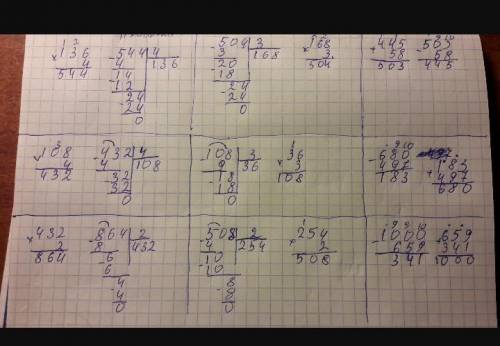 ×136
4
544
-544 | 4
4 | 136
-14
12
-24
24
0
-504 | 3
3 | 168
-20
18
-24
24
0
×168
3
504
+445
58
503
-503
58
445
×108
4
432
-432 | 4
4 | 108
-32
32
0
-108 | 3
9 | 36
-18
18
0
×36
3
108
-680
497
183
+183
497
680
×432
2
864
-864 | 2
8 | 432
-6
6
-4
4
0
-508 | 2
4 | 254
-10
10
-8
8
0
×254
2
508
-1000
659
341
+659
341
1000